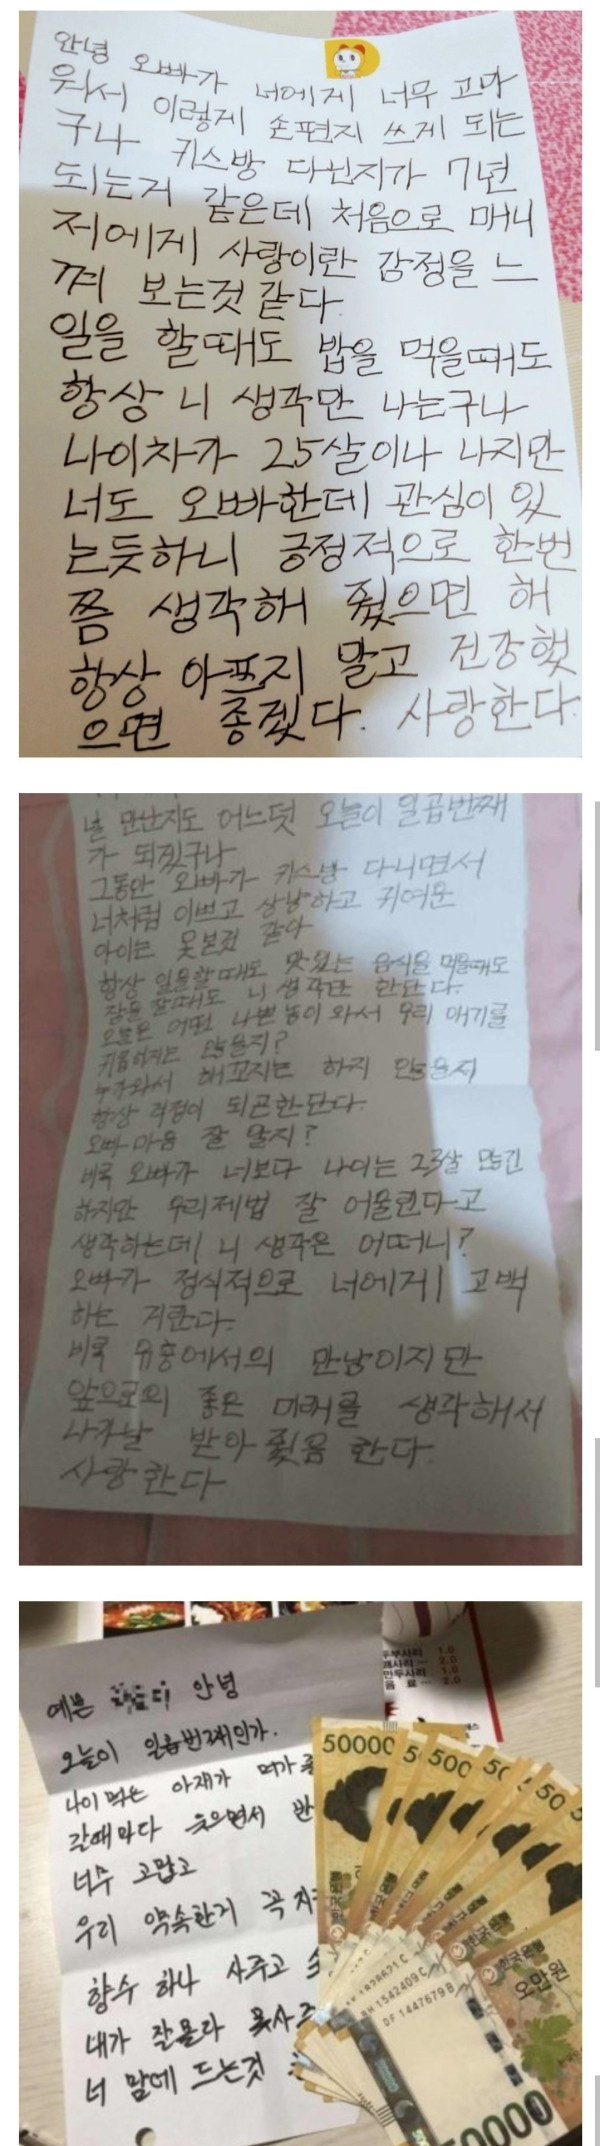 안녕 오빠가 너에게 너무 고마
워서 이렇게 손편지 쓰게 되는
구나 키스방 다닌지가 7년
되는거 같은데 처음으로 매니
저에게 사랑이란 감정을 느
껴 보는것 같다.
일을 할때도 밥을 먹을때도
항상 니 생각만 나는구나
나이차가 25살이나 나지만
너도 오빠한데 관심이 있
는듯하니 긍정적으로 한번
쯤 생각해 줬으면 해
항상 아프지 말고 건강했
으면 좋겠다. 사랑한다.
널 만난지도 어느덧 오늘이 일곱번째
가 되겠구나
그동안 오빠가 키스방 다니면서
너처럼 이쁘고 상냥하고 귀여운
아이는 못본것 같아
항상 일을할때도 맛있는 음식을 먹을때도
잠을 잘때도 니 생각만 한단다.
오늘은 어떤 나쁜 놈이 와서 우리 애기를
괴롭히지는 않을지?
누가와서 해꼬지는 하지 않을지
항상 걱정이 되곤한단다.
오빠 마음 잘 알지?
비록 오빠가 너보다 나이는 23살 많긴
하지만 우리제법 잘 어울린다고
생각하는데 니 생각은 어떠니?
오빠가 정식적으로 너에게 고백
하는 거란다.
비록 유흥에서의 만남이지만
앞으로의 좋은 미래를 생각해서
나주날 받아 줬음 한다.
사랑한다
예쁜 디 안녕
오늘이 일곱번째인가.
나이먹은 아재가 머가 좋
갈때마다 웃으면서 반
너무 고맙고
우리 약속한거 꼭 지켜
향수 하나 사주고
내가 잘몰라 못사주
너 맘에 드는것
두부사리 1.0
2.0
만두사리 1.0
음 료 2.0
50000
5
500
50
50
5
한국은행
한국은행
오만원
BH 1542409 C
DF 1447679 B
50000